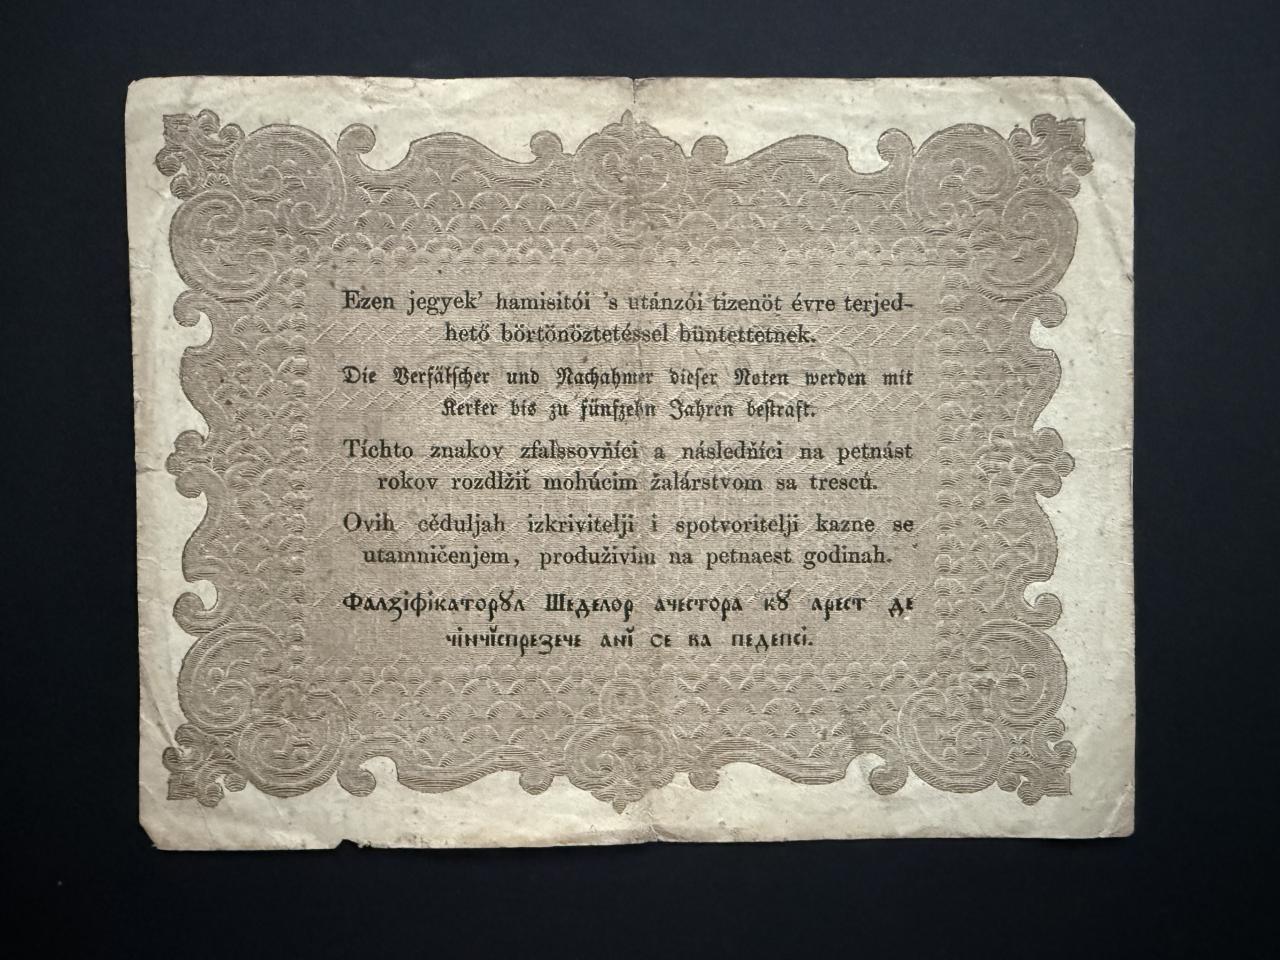 Ezen jegyek’ hamisitói ’s utánzói tizenöt évre terjed-
hető börtönöztetéssel büntettetnek.
Die Verfälscher und Nachahmer dieser Noten werden mit
Kerker bis zu fünfzehn Jahren bestraft.
Tíchto znakov zfalssovňíci a následňíci na petnást
rokov rozdlžiť mohúcim žalárstvom sa trescú.
Ovih cěduljah izkrivitelji i spotvoritelji kazne se
utamničenjem, produživim na petnaest godinah.
Фалʒіфікаторꙋл Шеделор ачестора кꙋ арест де
чінчĭспреʒече анĭ се ва педепсі.